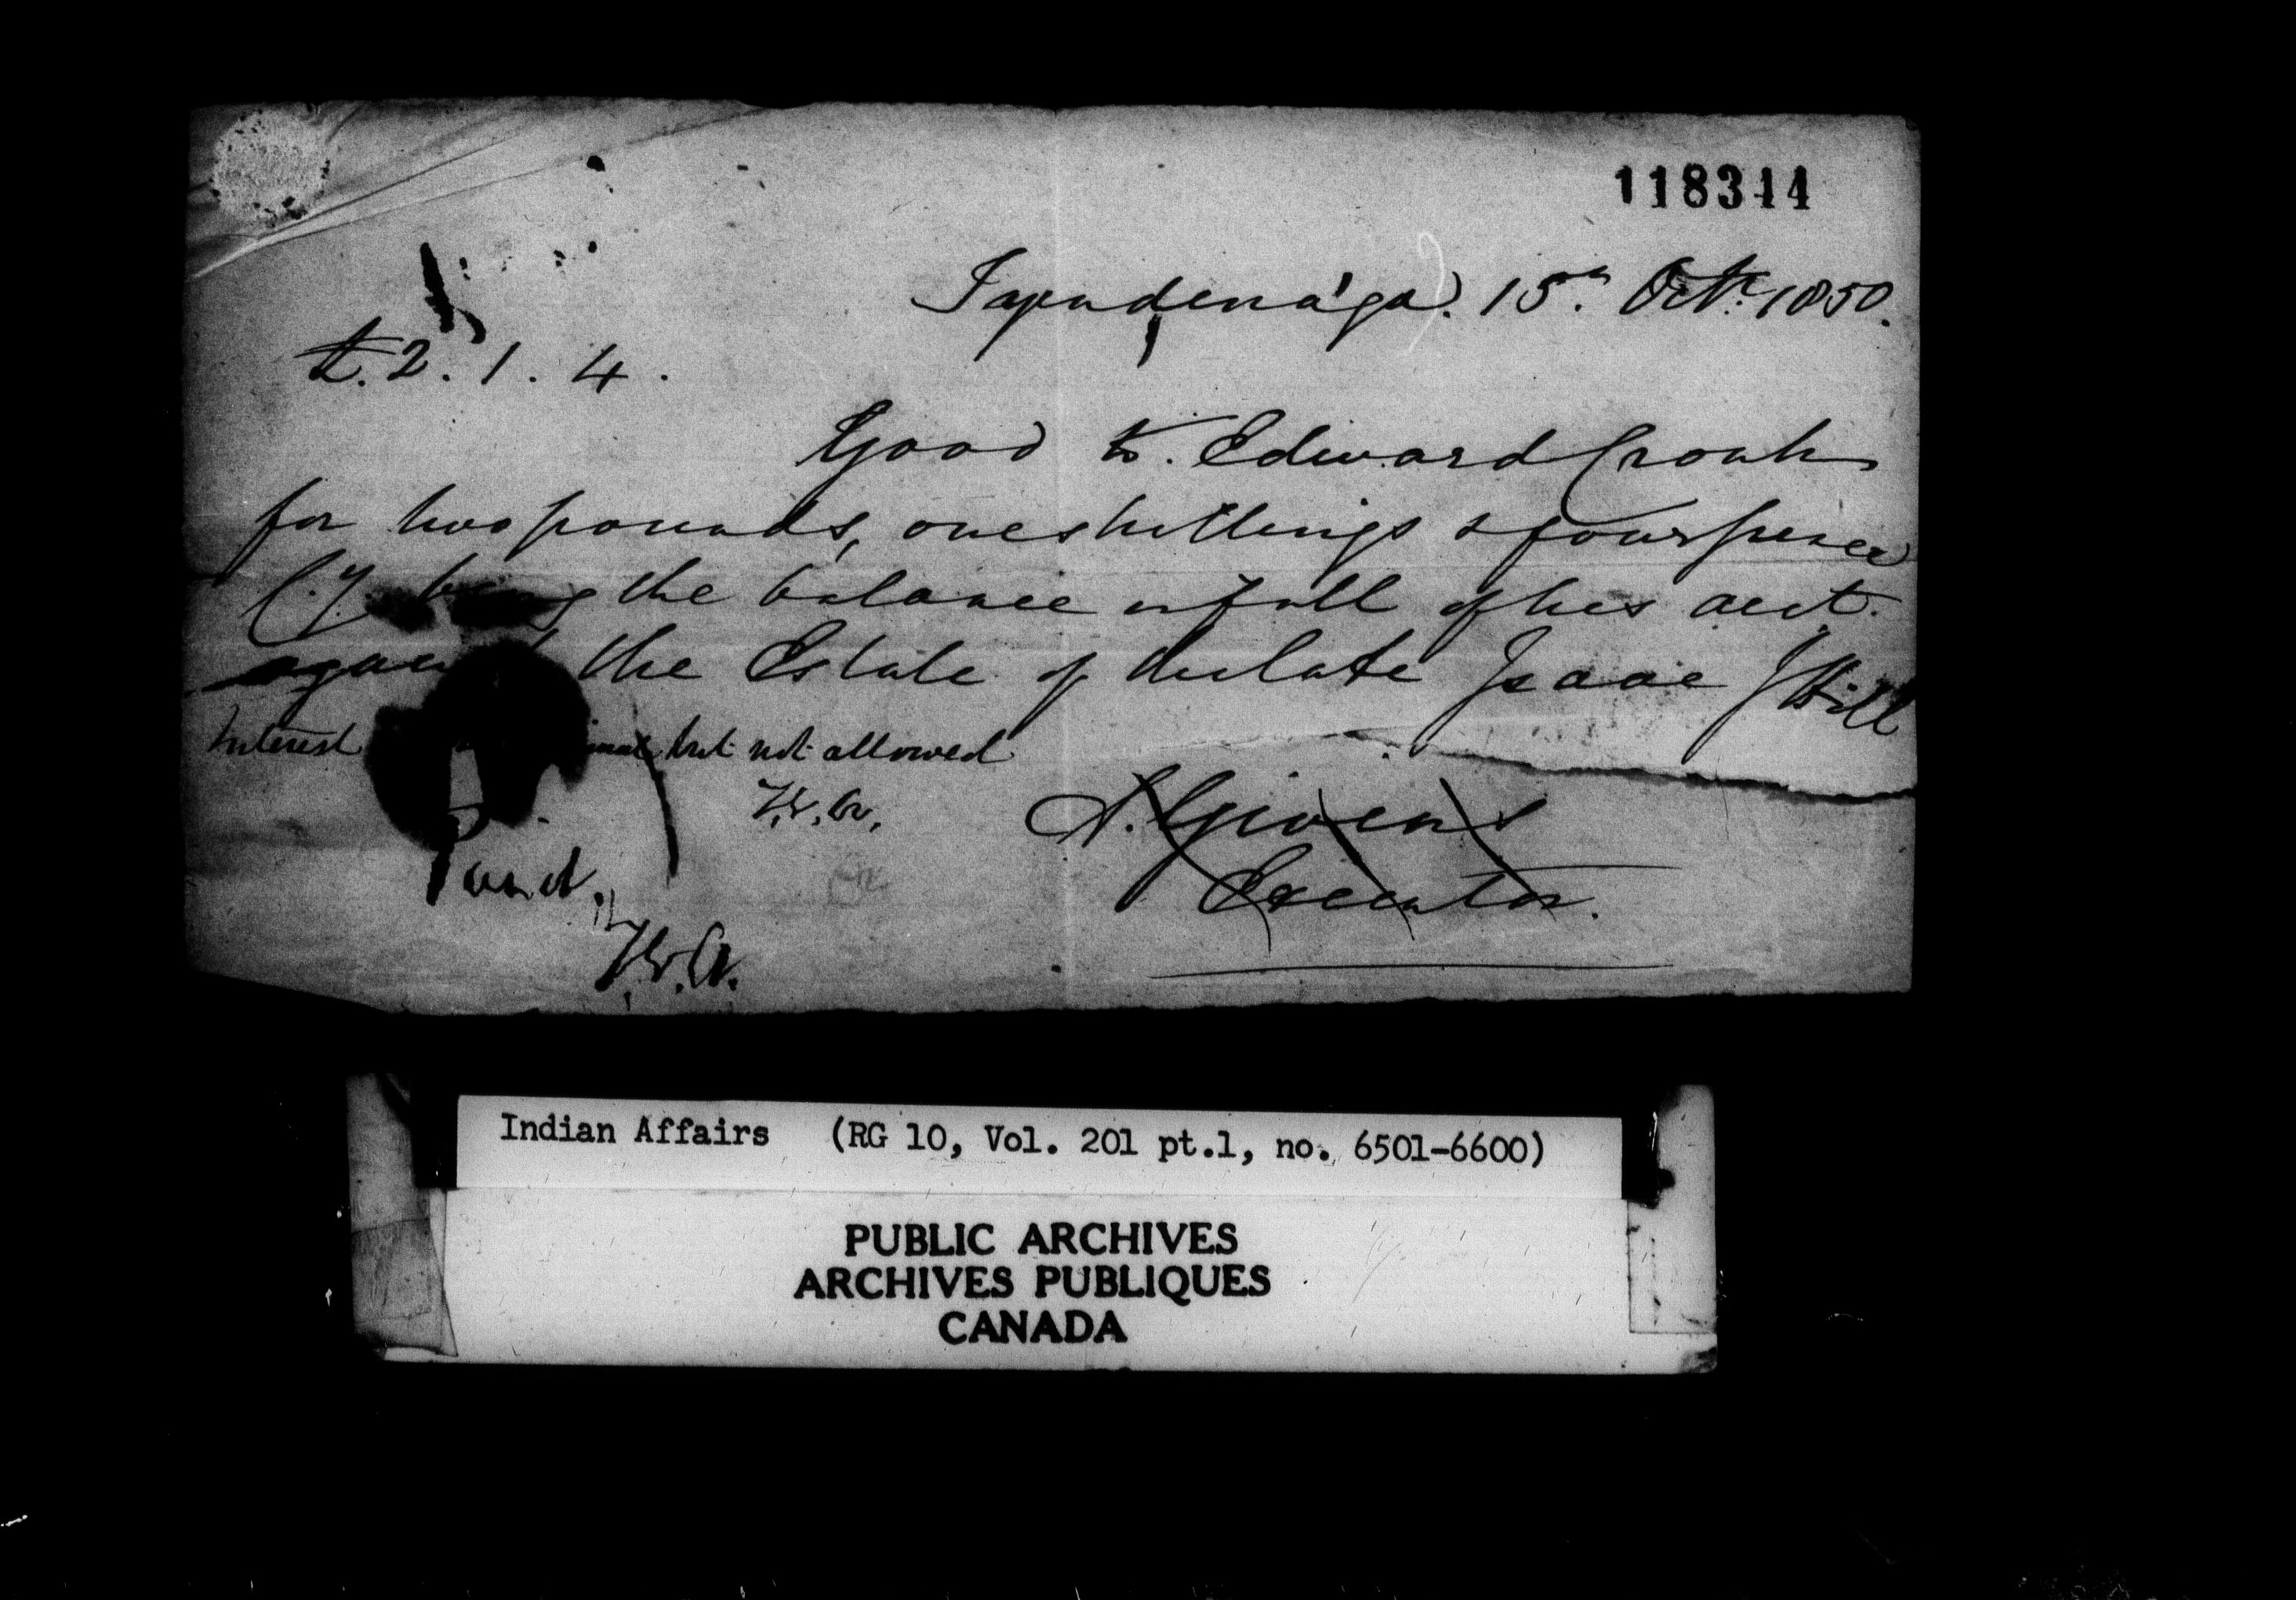 118344
Tyendenága. 15th Octr. 1850.
£.2.1.4.
Good to. Edward Cronk
for two pounds, one shillings & four pence
C.y being the balance in full of his acct.
against the Estate of the late Isaac J Hill
Interest but not allowed
T.G.A.
S. Givens
Executor.
Paid.
T.G.A.
Indian Affairs (RG 10, Vol. 201 pt.1, no. 6501-6600)
PUBLIC ARCHIVES
ARCHIVES PUBLIQUES
CANADA